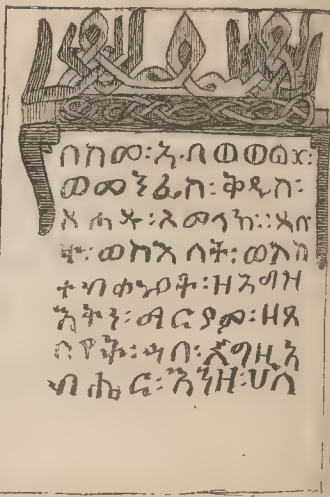 በስመ፡ አብ ወወልድ፡
ወመንፈስ፡ ቅዱስ፡
አሐዱ፡ አምላክ፡፡ ጸሎ
ት፡ ወስእለት፡ ወአስ
ተብቍዖት፡ ዘእግዝ
እትነ፡ ማርያም፡ ዘጸ
ለየት፡ ኀበ፡ እግዚአ
ብሔር፡ እንዘ፡ ሀለ